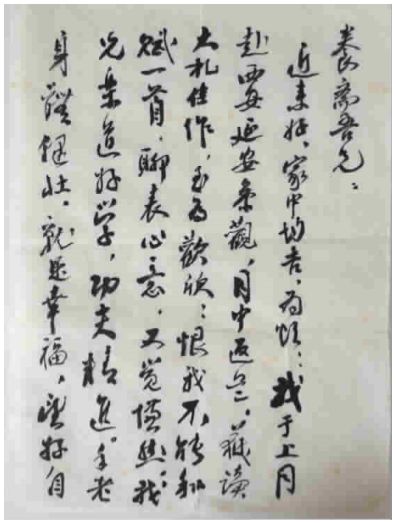 養齋吾兄：
近来好、家中均吉，为颂：我于上月
赴西安延安参觀，月中返京，读
大札佳作，至为歡欣：恨我不能和
赋一首，聊表心意，又觉然：我
兄樂道好学，功夫精進。年老
身體健壮，就是幸福，望好自